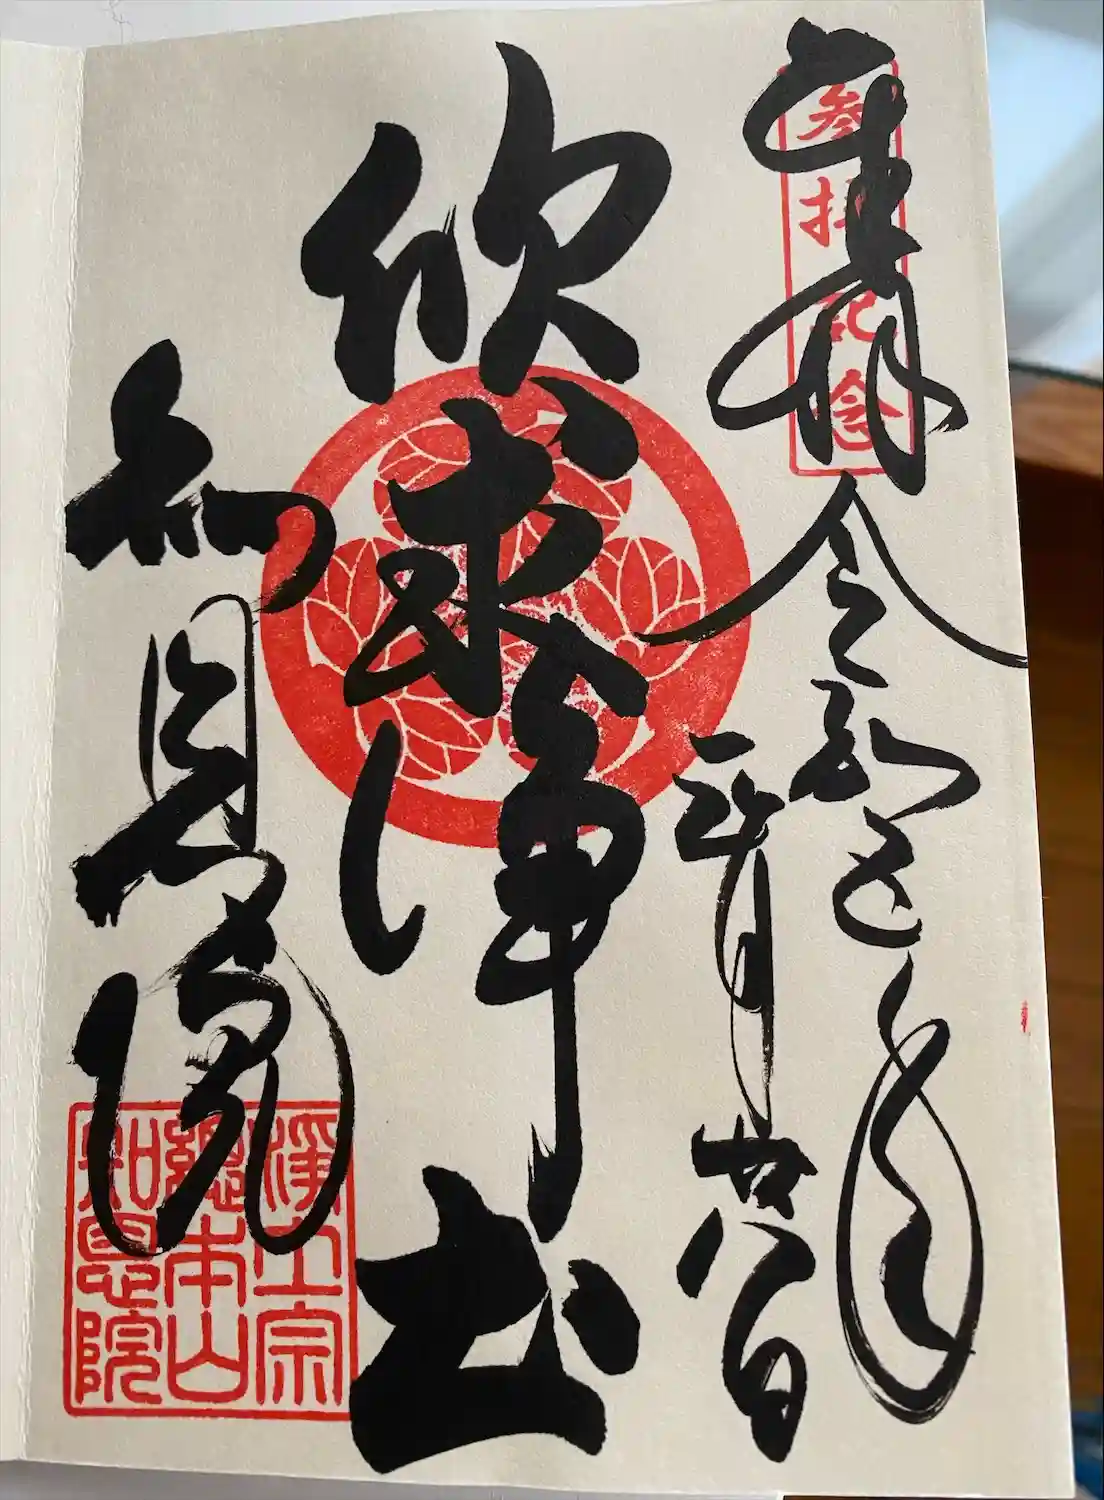 奉拝
参拝記念
令和五年
三月廿八日
欣求浄土
知恩院
淨土宗
總本山
知恩院